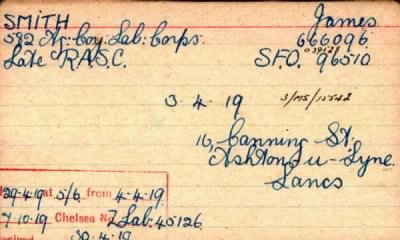 SMITH James
582 Ag: Coy: Lab: Corps. 666096
Late R.A.S.C. S.F.O. 96510
3. 4. 19 3/MS/15542
16, Canning St.
Ashton-u-Lyne.
Lancs
29.4.19 at 5/6 from 4-4-19
7.10.19 Chelsea No. Z Lab: 45126
30.4.19